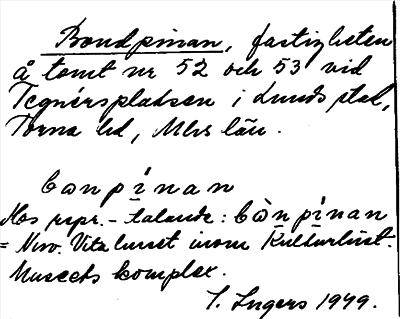 Bondpinan, fastigheten
å tomt nr 52 och 53 vid
Tegnérsplatsen i Lunds stad,
Torna hd, Mlhs län.
bɷnpínan
Hos repr.-talande: bɷ̀npínan
= Nuv. Vita huset inom Kulturhist.
Museets komplex.
I. Ingers 1949.